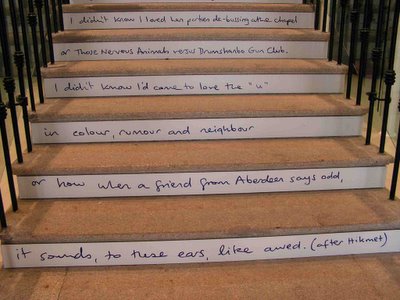 I didn't know I loved hen parties de-bussing at the chapel
or Those Nervous Animals versus Drumshanbo Gun Club.
I didn't know I'd came to love the "u"
in colour, rumour and neighbour
or how when a friend from Aberdeen says odd,
it sounds, to these ears, like awed. (after Hikmet)